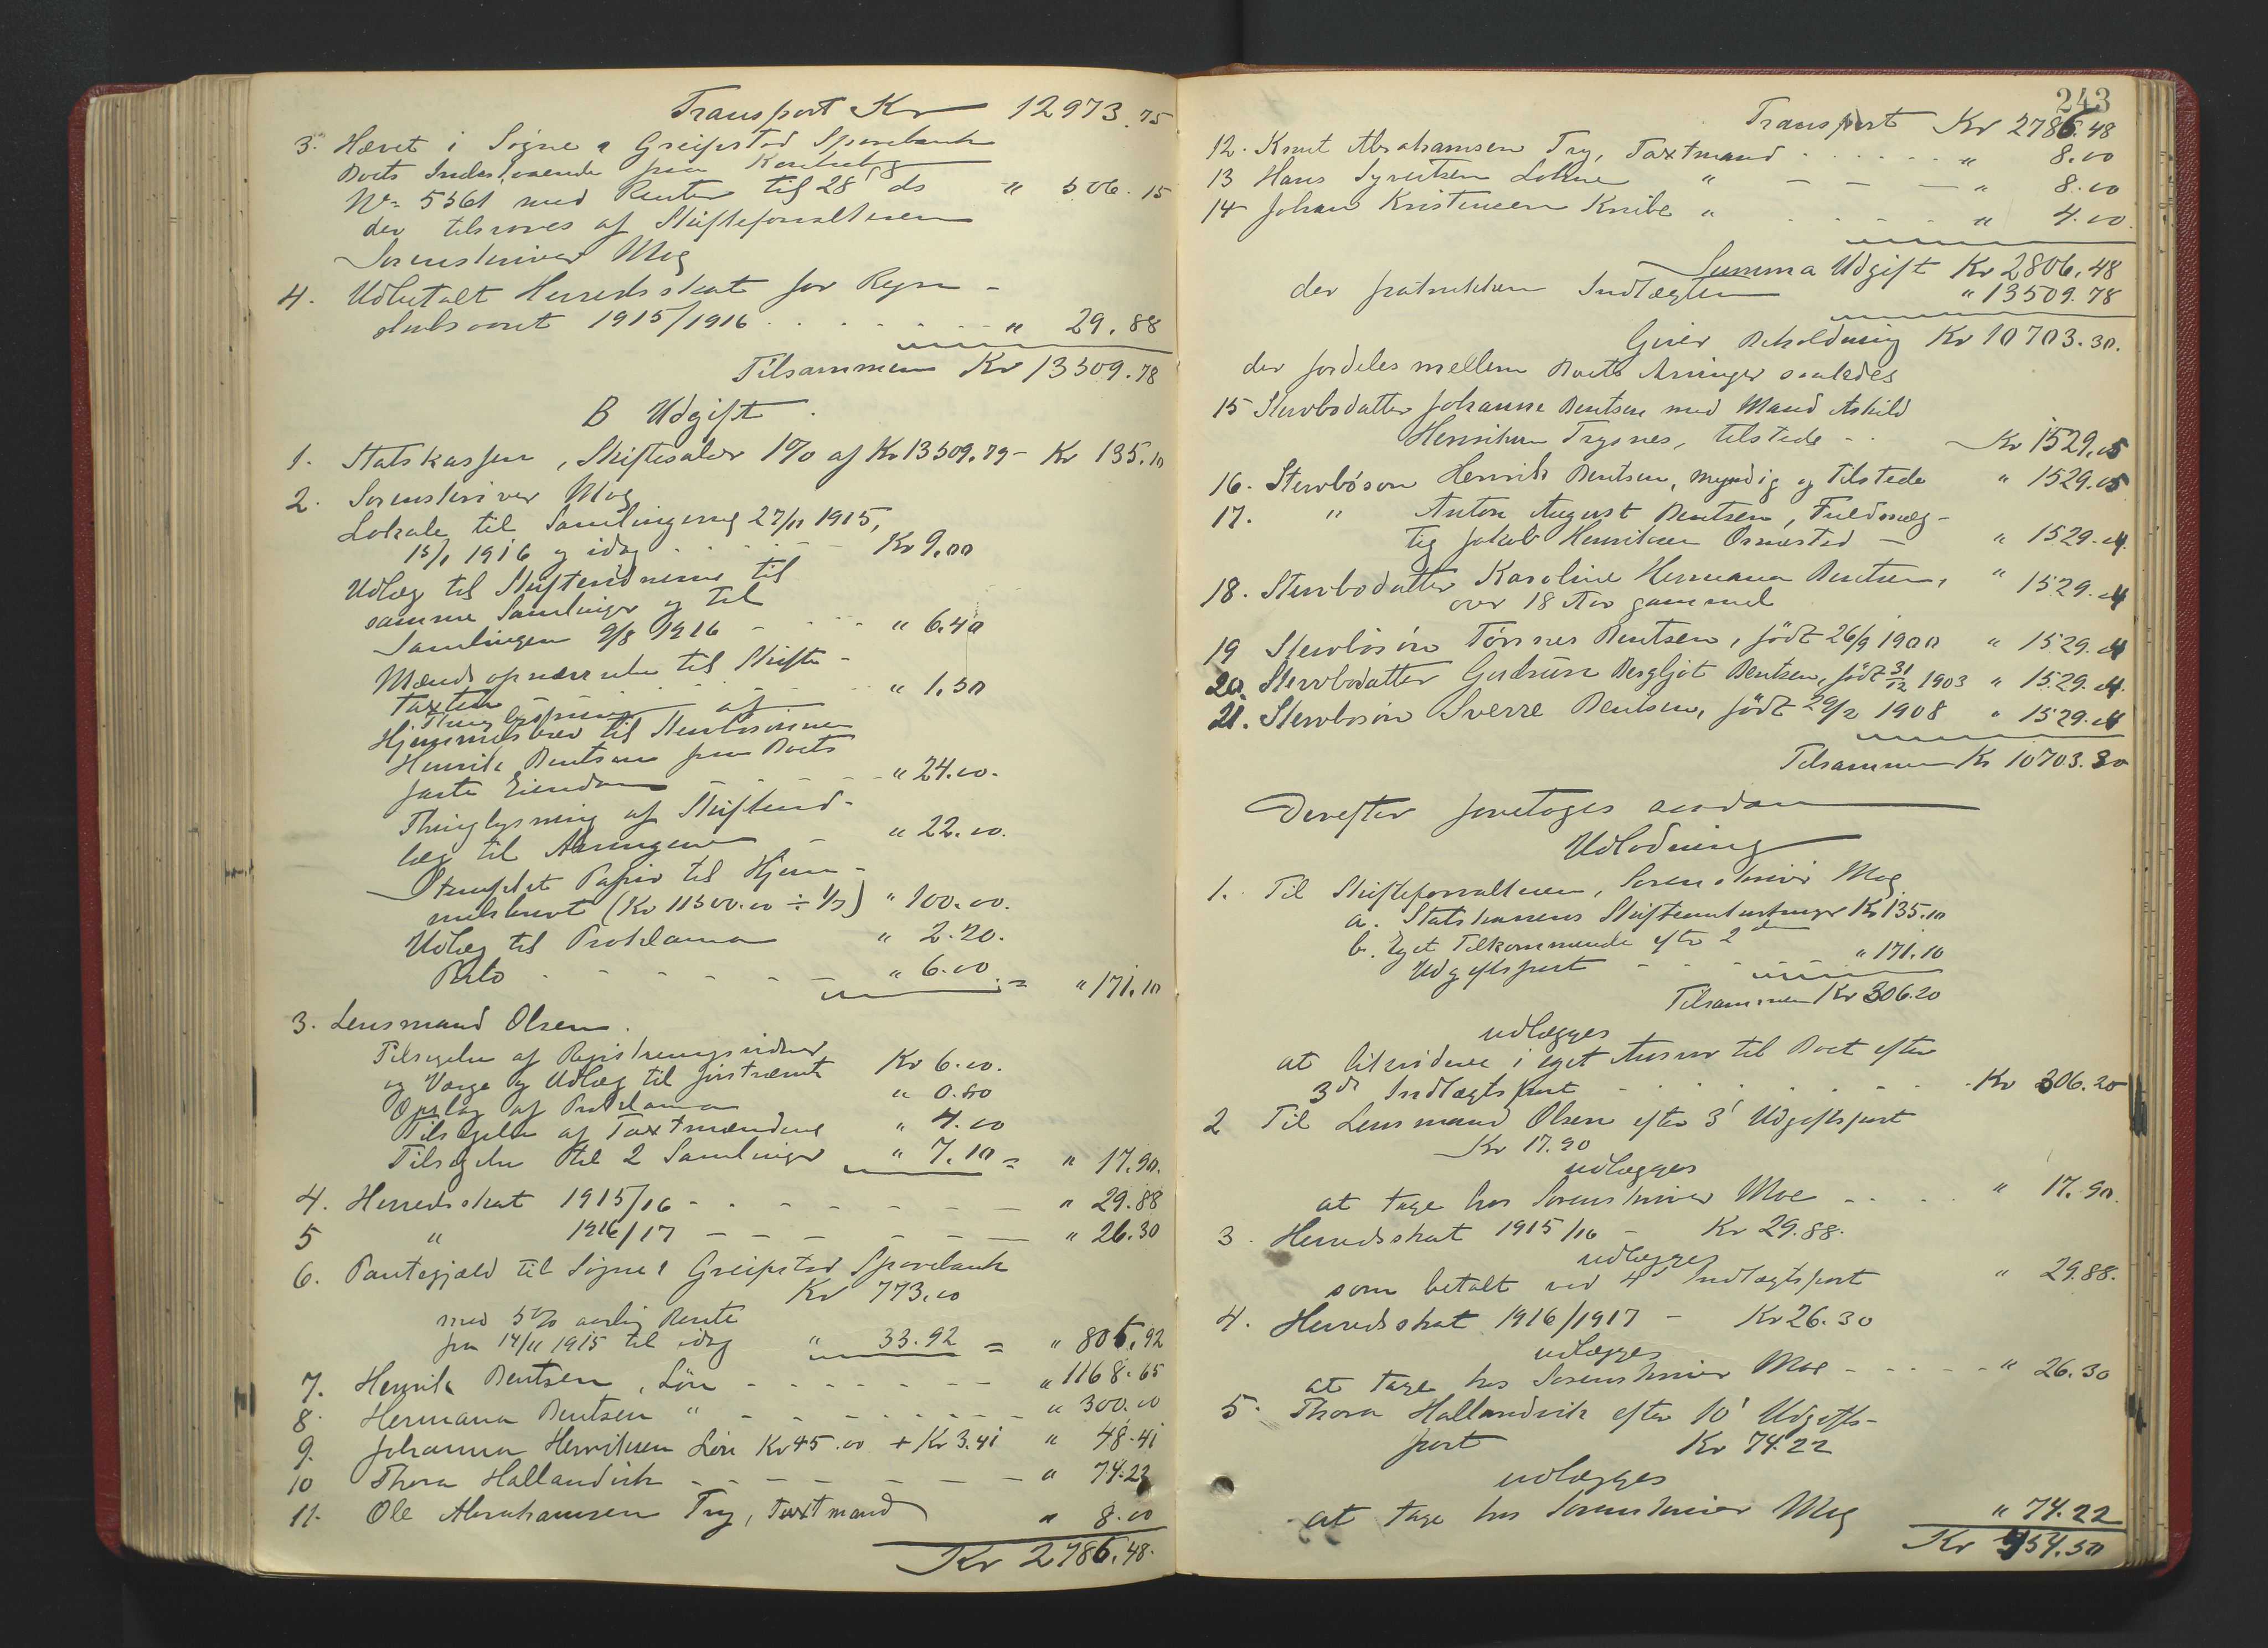 Transport Kr 12973.75
3. Hævet i Søgne & Greipstad Sparebank
Boets Indestaaende paa Kontrabog
No 5561 med Renter til 28/8 ds " 506.15
der tilsvares af Skifteforvalteren
Sorenskriver Moe
4. Udbetalt Herredsskat for Regn-
skabsaaret 1915/1916 . . . . " 29.88
Tilsammen Kr 13509.78
B Udgift.
1. Statskassen, Skiftesalær 1% af Kr 13509.79 - Kr 135.10
2. Sorenskriver Moe
Lokale til Samlingerne 27/11 1915,
15/1 1916 og idag . . . . Kr 9.00
Udlæg til Skiftevidnerne til
samme Samlinger og til
Samlingen 9/8 1916 - . . . " 6.40
Mænds opnævnelse til Skifte-
taxten - - - - " 1.50
Thinglysning af
Hjemmelsbrev til Stervbosønnen
Henrik Bentsen paa Boets
faste Eiendom - - - - " 24.00.
Thinglysning af Skifteud-
læg til Arvingerne - " 22.00.
Stemplet Papir til Hjem-
melsbrevet (Kr 11500.00 ÷ 1/7) " 100.00.
Udlæg til Proklama " 2.20.
Porto - - - - - " 6.00 = " 171.10
3. Lensmand Olsen.
Tilsigelse af Registreringsvidner
og Værge og Udlæg til førstnævnte Kr 6.00.
Opslag af Proklama " 0.80
Tilsigelse af Taxtmændene " 4.00
Tilsigelse til 2 Samlinger " 7.10 = " 17.90.
4. Herredsskat 1915/16 - - - - - - " 29.88
5 " 1916/17 - - - - - - " 26.30
6. Pantegjæld til Søgne & Greipstad Sparebank
Kr 773.00
med 5% aarlig Rente
fra 14/11 1915 til idag " 33.92 = " 806.92
7. Henrik Bentsen, Løn - - - - - - " 1168.65
8. Hermana Bentsen " - - - - - - " 300.00
9. Johanna Henriksen Løn Kr 45.00 + Kr 3.41 " 48.41
10 Thora Hallandvik - - - - - - " 74.22
11. Ole Abrahamsen Try, Taxtmand " 8.00
Kr 2786.48.
243
Transport Kr 2786.48
12. Knut Abrahamsen Try, Taxtmand . . . . . " 8.00
13 Hans Syvertsen Lohne " - - - " 8.00
14 Johan Kristensen Knibe " . . . . " 4.00.
Summa Udgift Kr 2806.48
der fratrukken Indtægten " 13509.78
Giver Beholdning Kr 10703.30.
der fordeles mellem Boets Arvinger saaledes
15 Stervbodatter Johanne Bentsen med Mand Askild
Henriksen Trysnes, tilstede - . Kr 1529.05
16. Stervbosøn Henrik Bentsen, myndig og tilstede " 1529.05
17. " Anton August Bentsen, Fuldmæg-
tig Jakob Henriksen Ormestad - " 1529.04.
18. Stervbodatter Karoline Hermana Bentsen, " 1529.04
over 18 Aar gammel
19 Stervbosøn Tønnes Bentsen, født 26/9 1900 " 1529.04
20. Stervbodatter Gudrun Bergljot Bentsen, født 31/12 1903 " 1529.04.
21. Stervbosøn Sverre Bentsen, født 29/2 1908 " 1529.04
Tilsammen Kr 10703.30
Derefter foretoges saadan
Udlodning
1. Til Skifteforvalteren, Sorenskriver Moe
a. Statskassens Kr 135.10
b. Eget Tilkommende efter 2den
Udgiftspost - - - " 171.10
Tilsammen Kr 306.20
udlægges
at likvidere i eget Ansvar til Boet efter
3de Indtægtspost - . . . . . . Kr 306.20
2 Til Lensmand Olsen efter 3' Udgiftspost
Kr 17.90
udlægges
at tage hos Sorenskriver Moe - - . . " 17.90.
3. Herredsskat 1915/16 - Kr 29.88.
udlægges
som betalt ved 4de Indtægtspost " 29.88.
4. Herredsskat 1916/1917 - Kr 26.30
udlægges
at tage hos Sorenskriver Moe - - - - - " 26.30
5. Thora Hallandvik efter 10' Udgifts-
post Kr 74.22
udlægges
at tage hos Sorenskriver Moe " 74.22
Kr 454.50